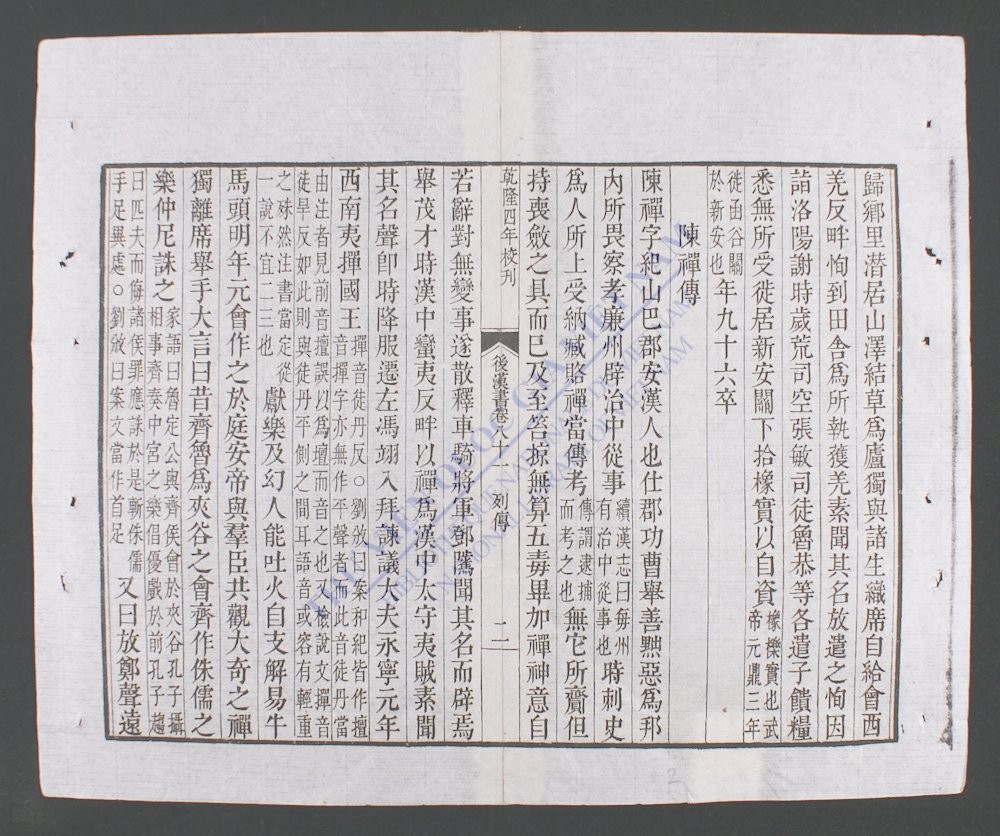 歸鄉里潛居山澤結草爲廬獨與諸生織席自給會西
羌反畔恂到田舍爲所執獲羌素聞其名放遣之恂因
詣洛陽謝時歲荒司空張敏司徒魯恭等各遣子饋糧
悉無所受徙居新安關下拾橡實以自資橡櫟實也武帝元鼎三年
徙函谷關於新安也年九十六卒
陳禪傳
陳禪字紀山巴郡安漢人也仕郡功曹舉善黜惡爲邦
內所畏察孝廉州辟治中從事續漢志曰每州有治中從事也時刺史
爲人所上受納臧賂禪當傳考傳謂逮捕而考之也無它所齎但
持喪斂之具而已及至笞掠無算五毒畢加禪神意自
乾隆四年校刊
後漢書卷八十一 列傳
二
若辭對無變事遂散釋車騎將軍鄧騭聞其名而辟焉
舉茂才時漢中蠻夷反畔以禪爲漢中太守夷賊素聞
其名聲卽時降服遷左馮翊入拜諫議大夫永寧元年
西南夷撣國王撣音徒丹反○劉攽曰案和紀皆作擅音撣字亦無作平聲者而此音徒丹當
由注者見前音擅誤以爲壇而音之也又檢說文撣音徒旱反如此則與徒丹平側之間耳語音或容有輕重
之殊然注書當定從一說不宜二三也獻樂及幻人能吐火自支解易牛
馬頭明年元會作之於庭安帝與羣臣共觀大奇之禪
獨離席舉手大言曰昔齊魯爲夾谷之會齊作侏儒之
樂仲尼誅之家語曰魯定公與齊侯會於夾谷孔子攝相事齊奏中宮之樂倡優戲於前孔子趨
曰匹夫而侮諸侯罪應誅於是斬侏儒手足異處○劉攽曰案文當作首足又曰放鄭聲遠
THƯ VIỆN QUỐC GIA VIỆT NAM
BIBLIOTHEQUE NATIONALE DU VIETNAM
NATIONAL LIBRARY OF VIETNAM